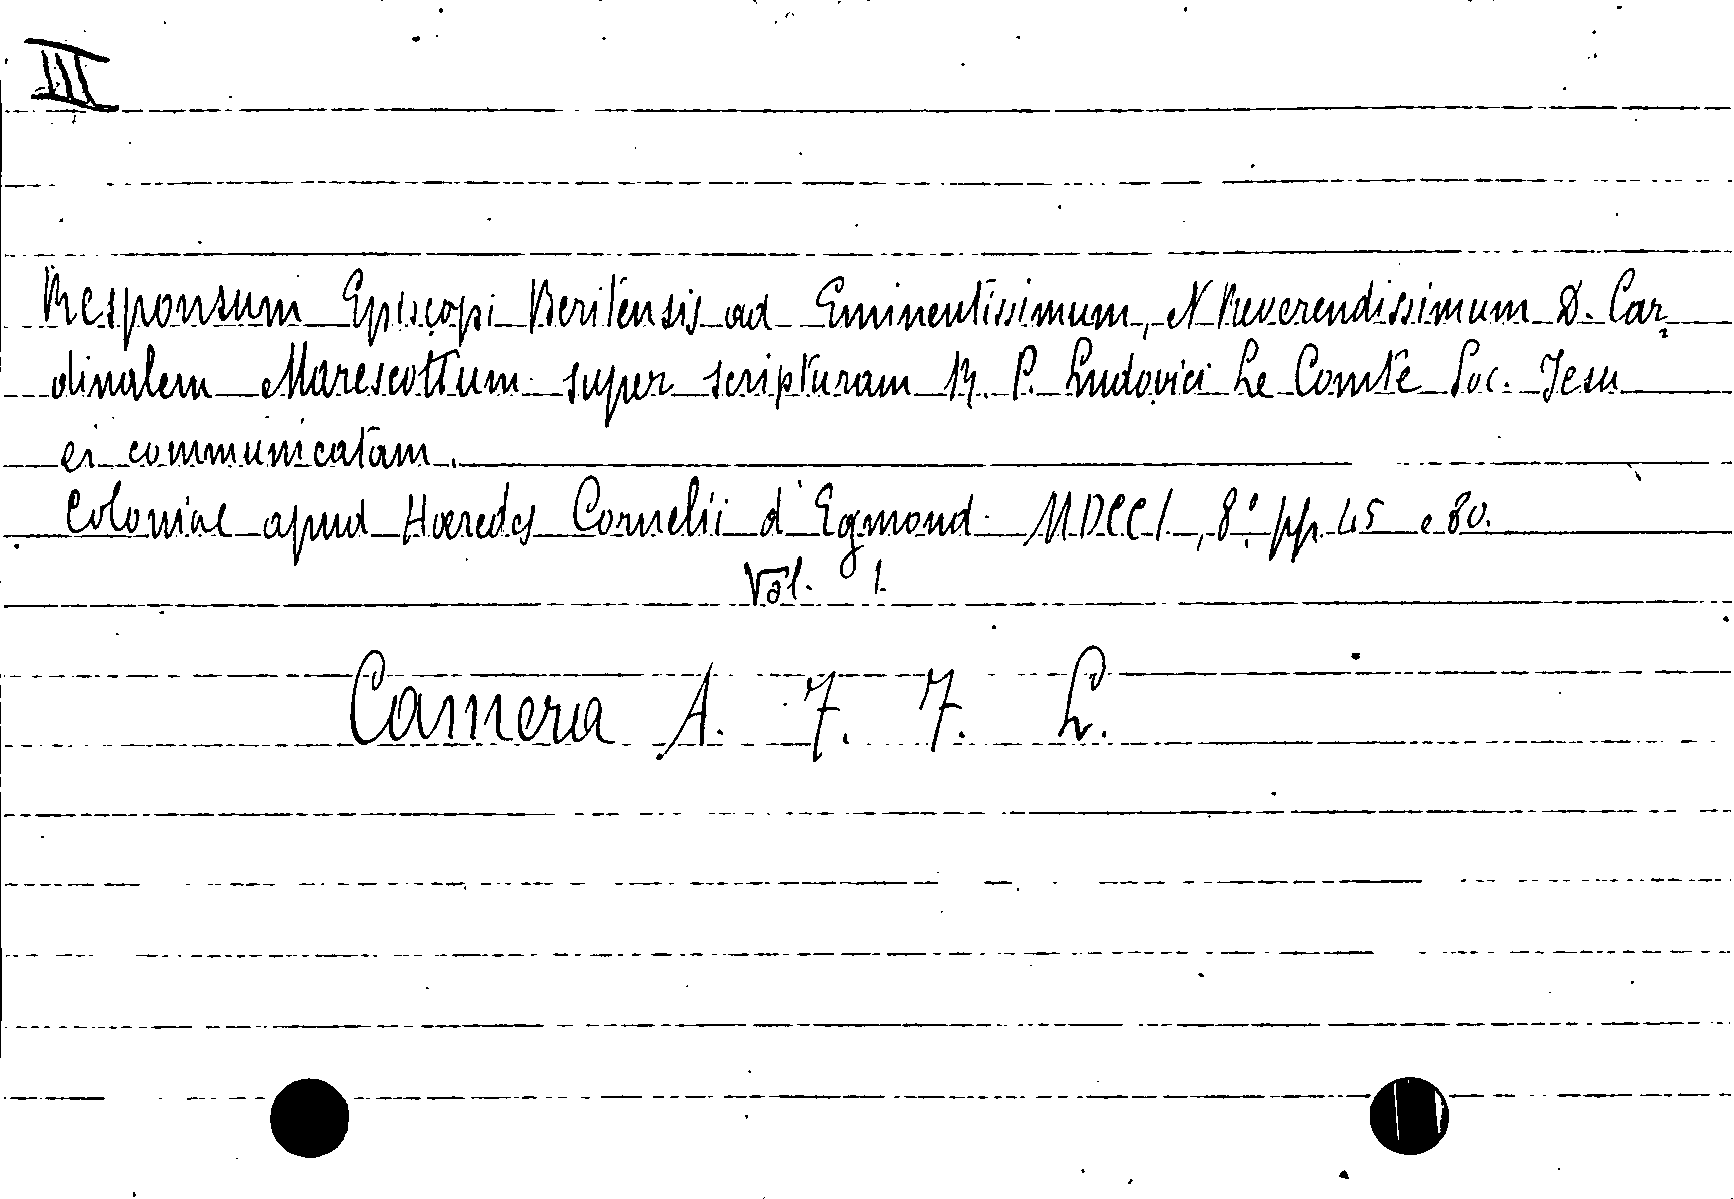 III
Responsum Episcopi Beritensis ad Eminentissimum, & Reverendissimum D. Car=
dinalem Marescottum super scripturam R. P. Ludovici Le Comte Soc. Jesu
ei communicatam.
Coloniae apud Haeredes Cornelii d'Egmond MDCCI, 8° pp. 45 e 80.
Vol. 1.
Camera A. 7. 7. L.